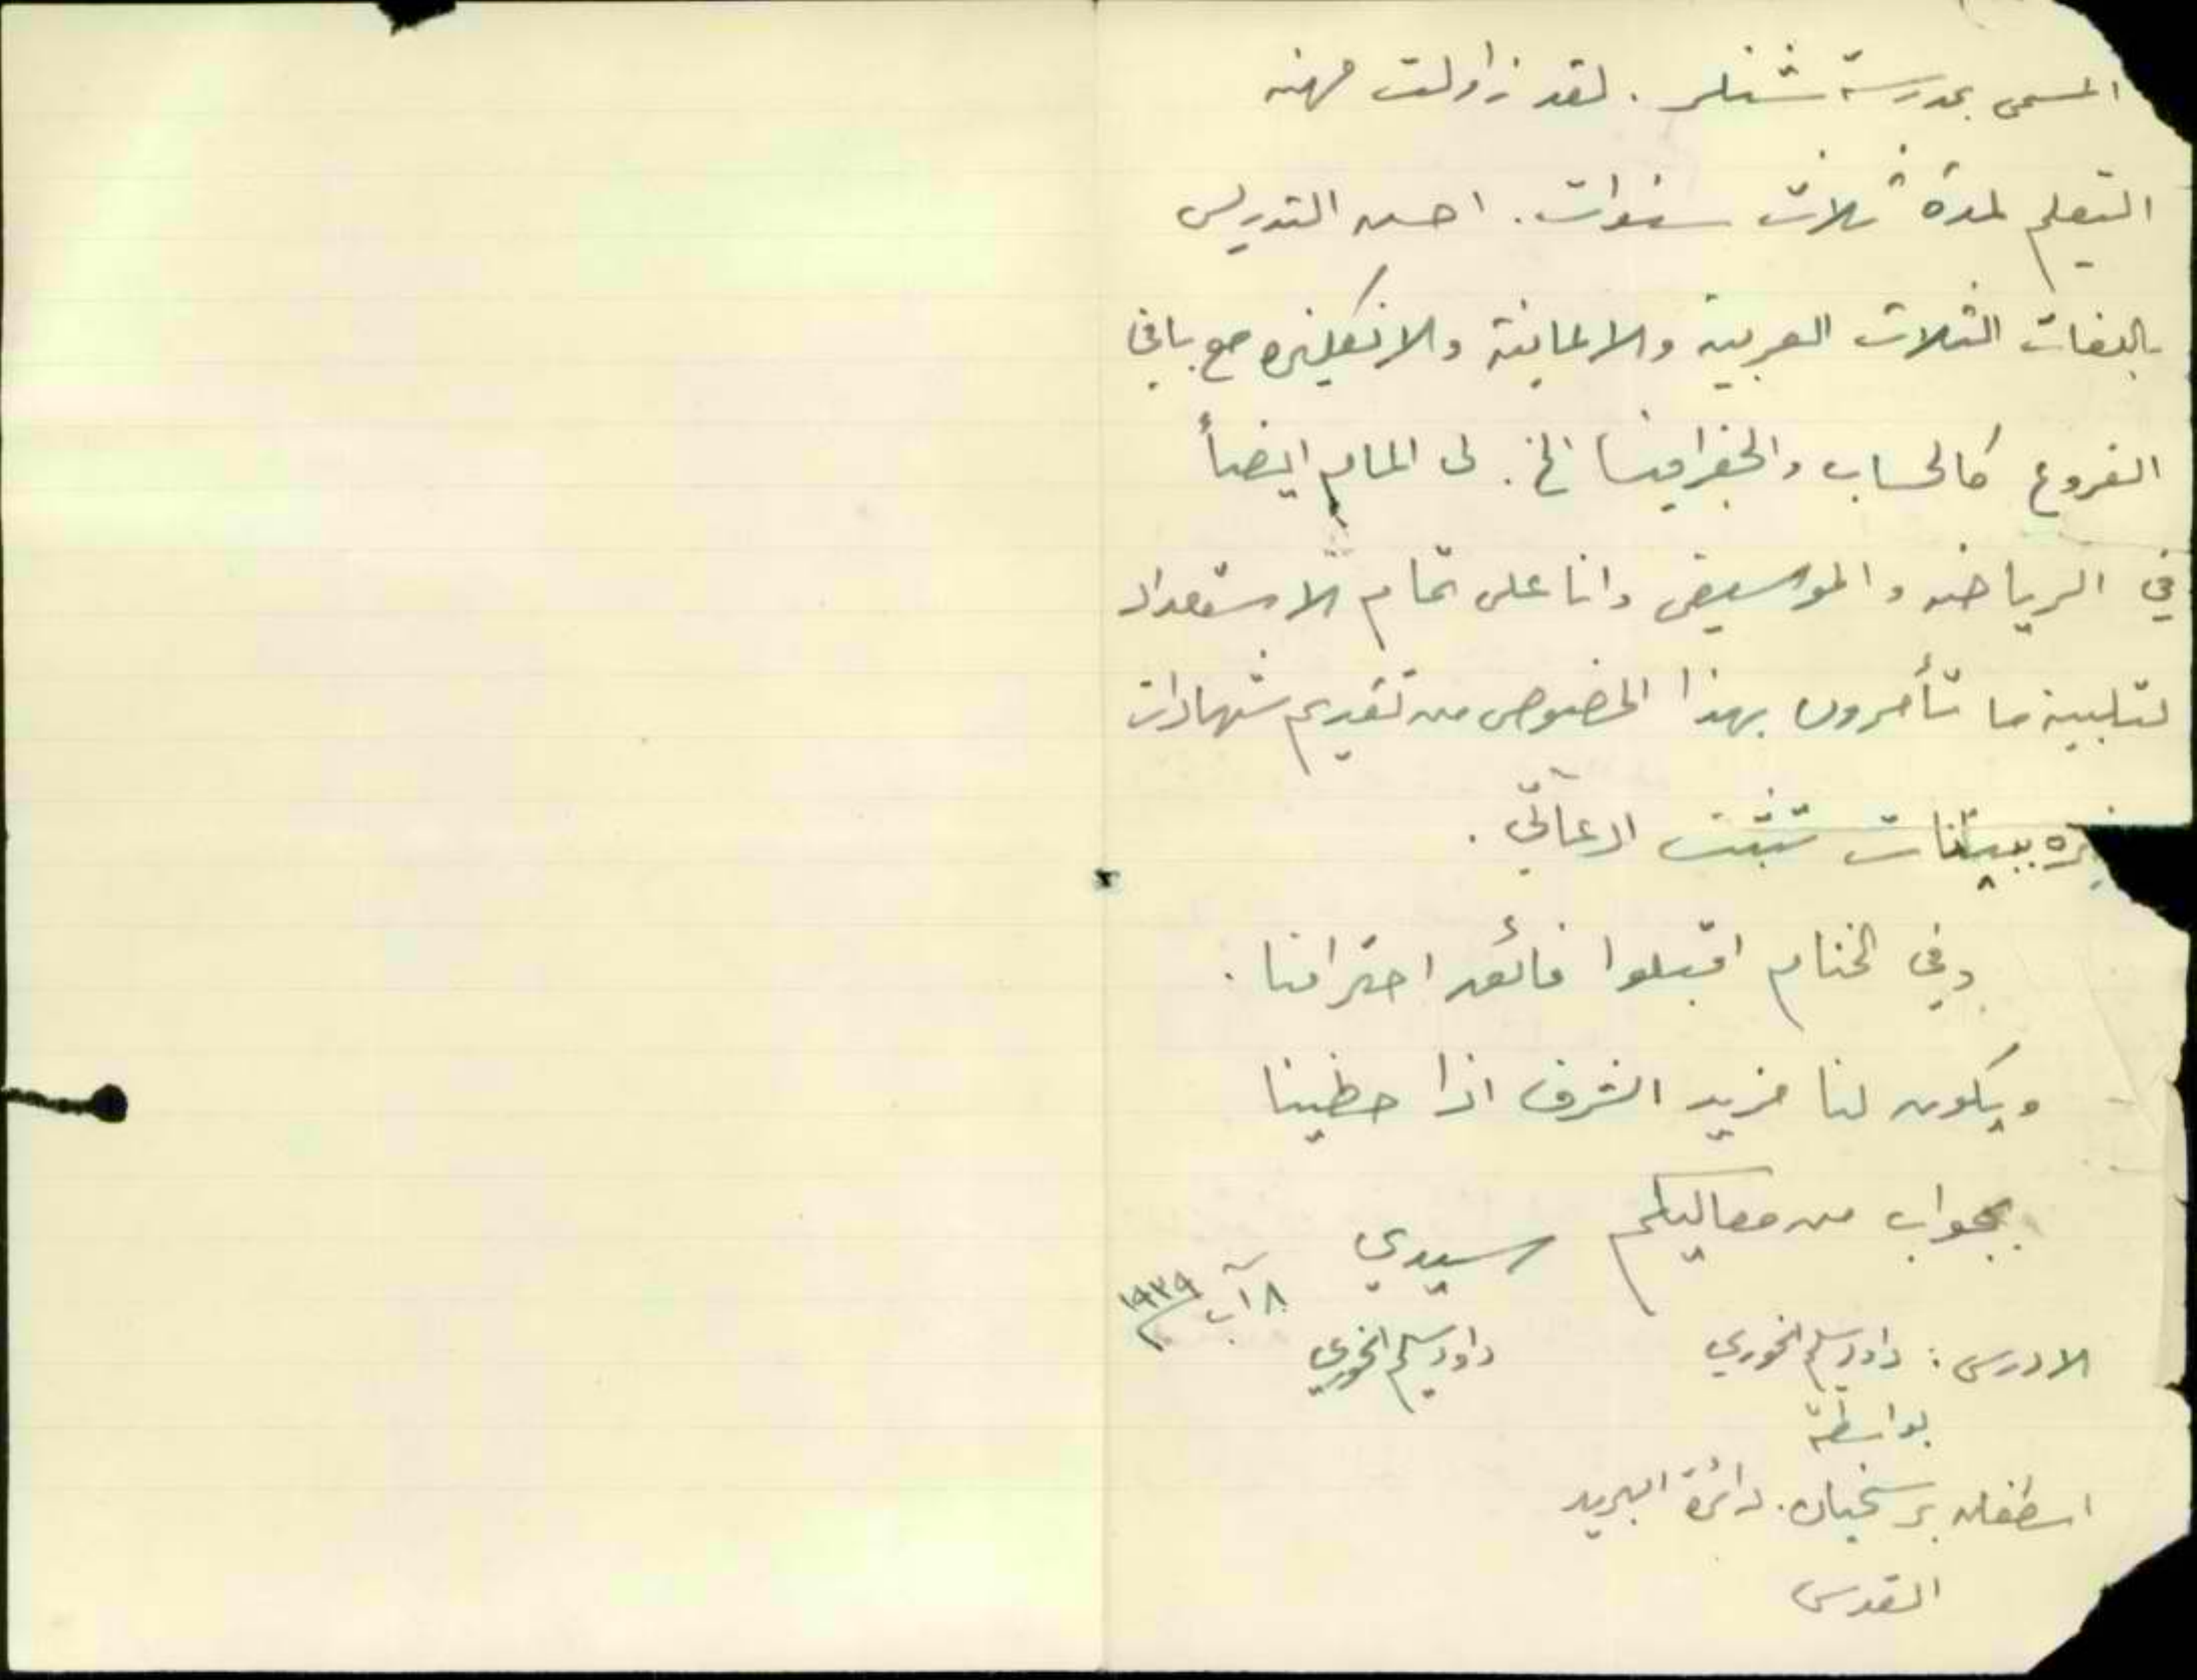 المسمى بمدرسة شنلر . لقد زاولت مهنه
التعليم لمدة ثلاث سنوات . احسن التدريس
بالغات الثلاث العربية والالمانية والانكليزيه مع باقي
الفروع كالحساب والجغرافيا الخ . لى المام ايضاً
في الرياضه والموسيقى وانا على تمام الاستعداد
لتلبية ما تأمرون بهذا الخصوص من تقديم شهادات
ببينات تثبت ادعائي .
وفي الختام اقبلوا فائق احترامنا .
ويكون لنا مزيد الشرف اذا حظينا
بجواب من معاليكم سيدي
٨ آب ١٩٣٩
داود سليم الخوري
الادرس : داود سليم الخوري
بواسطة
اسطفان برسخيان . دائرة البريد
القدس